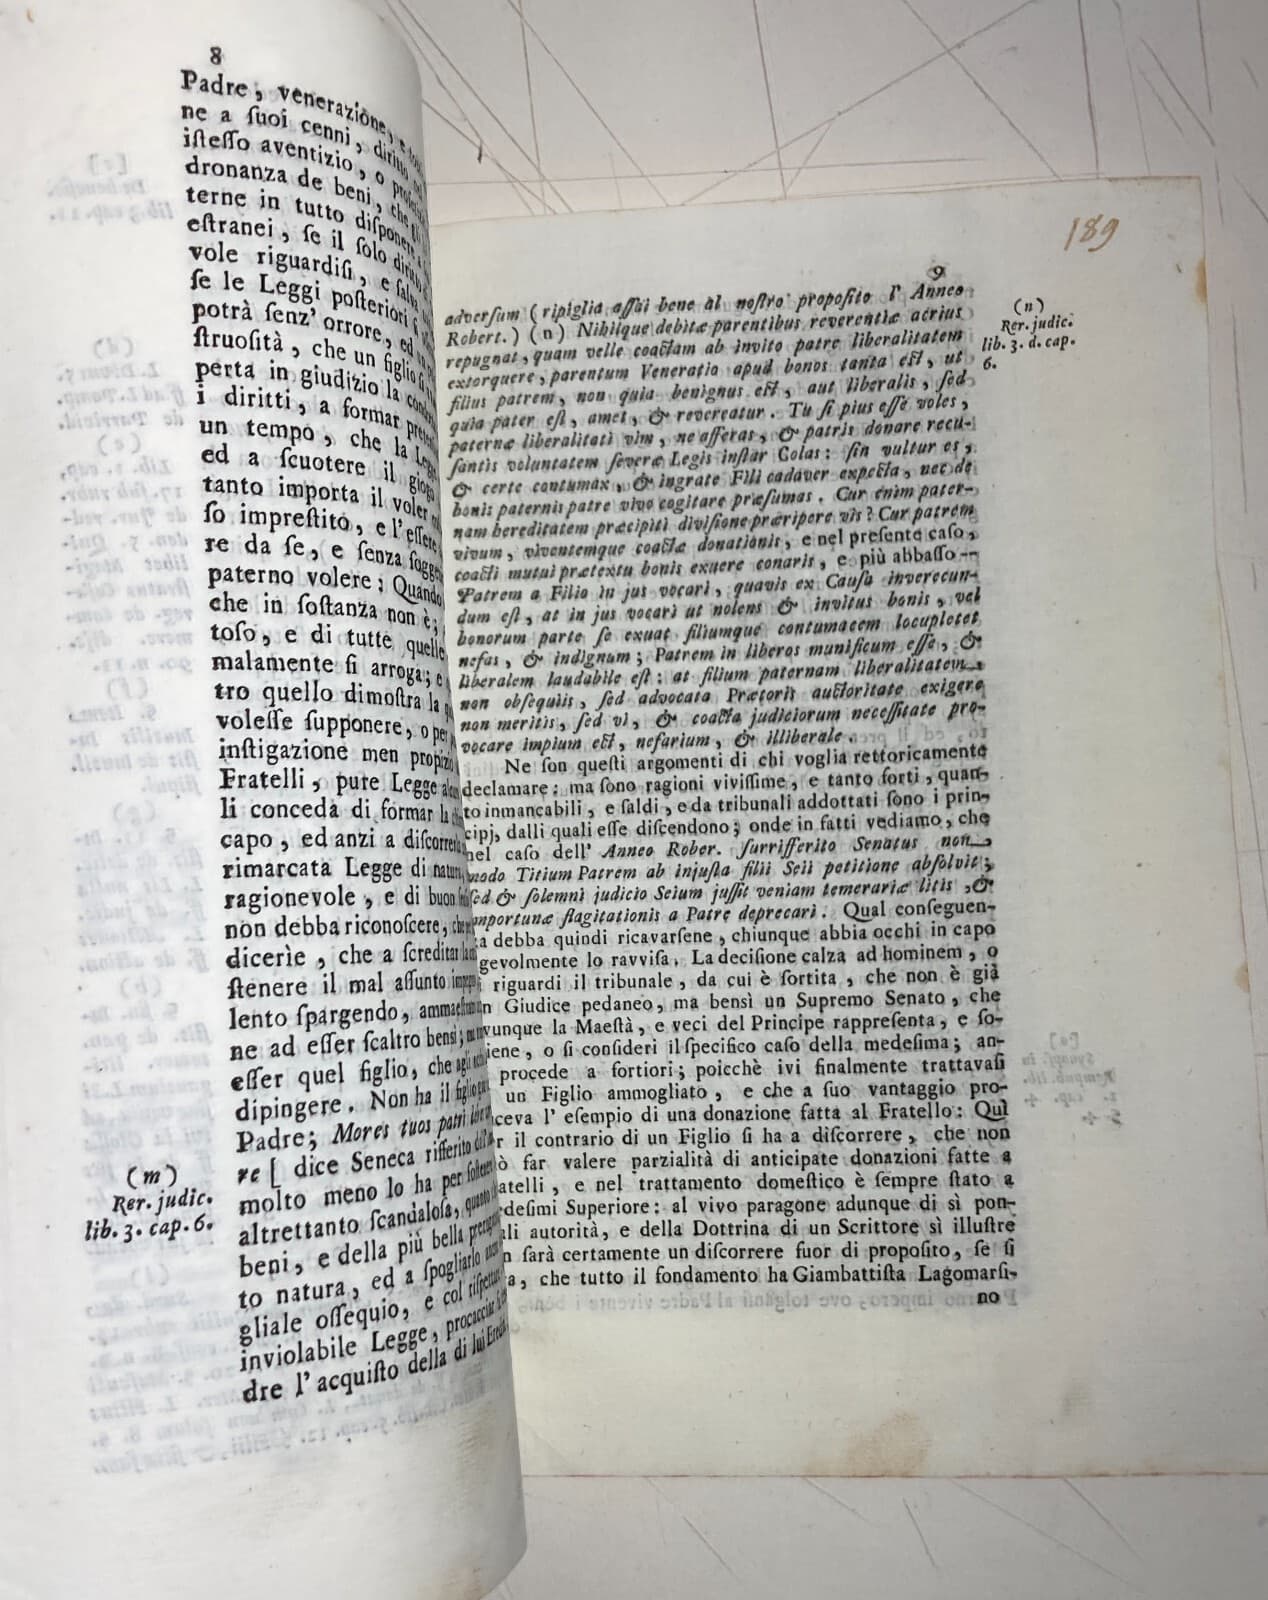 8
Padre, venerazione, e
ne a ſuoi cenni, diritto
iſteſſo aventizio, o
dronanza de beni, che
terne in tutto diſponere
eſtranei, ſe il ſolo diritto
vole riguardiſi, e ſalva
ſe le Leggi poſteriori
potrà ſenz' orrore, ed
ſtruoſità, che un figlio
perta in giudizio la
i diritti, a formar
un tempo, che la Legge
ed a ſcuotere il giogo
tanto importa il voler
ſo impreſtito, e l'eſſere
re da ſe, e ſenza
paterno volere; Quando
che in ſoſtanza non è;
toſo, e di tutte quelle
malamente ſi arroga; e
tro quello dimoſtra la
voleſſe ſupponere, o per
inſtigazione men propizia
Fratelli, pure Legge
li conceda di formar la
capo, ed anzi a diſcorrerla
rimarcata Legge di natura,
ragionevole, e di buon
non debba riconoſcere,
dicerìe, che a ſcreditar
ſtenere il mal aſſunto
lento ſpargendo,
ne ad eſſer ſcaltro bensì;
eſſer quel figlio, che agli
dipingere. Non ha il figlio
Padre; Mores tuos patri
re [ dice Seneca rifferito
(m)
Rer. judic.
lib. 3. cap. 6.
molto meno lo ha per
altrettanto ſcandaloſa, quanto
beni, e della più bella
to natura, ed a ſpogliarlo
gliale oſſequio, e col
inviolabile Legge, procacciar
dre l'acquiſto della di lui
189
9
adverſum (ripiglia aſſai bene al noſtro propoſito l' Anneo
Robert.) (n) Nihilque debitæ parentibus reverentiæ acrius
(n)
Rer. judic.
lib. 3. d. cap.
6.
repugnat, quam velle coactam ab invito patre liberalitatem
extorquere, parentum Veneratio apud bonos tanta eſt, ut
filius patrem, non quia benignus eſt, aut liberalis, ſed
quia pater eſt, amet, & revereatur. Tu ſi pius eſſe voles,
paternæ liberalitati vim, ne afferas, & patris donare recu-
ſantis voluntatem ſeveræ Legis inſtar Colas: ſin vultur es,
& certe contumax, & ingrate Fili cadaver expecta, nec de
bonis paternis patre vivo cogitare præſumas. Cur enim pater-
nam hereditatem præcipiti diviſione præripere vis? Cur patrem
vivum, viventemque coactæ donationis, e nel preſente caſo,
coacti mutui prætextu bonis exuere conaris, e più abbaſſo --
Patrem a Filio in jus vocari, quavis ex Cauſa inverecun-
dum eſt, at in jus vocari ut nolens & invitus bonis, vel
bonorum parte ſe exuat filiumque contumacem locupletet
nefas, & indignum; Patrem in liberos munificum eſſe, &
liberalem laudabile eſt: at filium paternam liberalitatem
non obſequiis, ſed advocata Prætoris auctoritate exigere
non meritis, ſed vi, & coacta judiciorum neceſſitate pro-
vocare impium eſt, nefarium, & illiberale.
Ne ſon queſti argomenti di chi voglia rettoricamente
declamare: ma ſono ragioni viviſſime, e tanto forti, quan-
to inmancabili, e ſaldi, e da tribunali addottati ſono i prin-
cipj, dalli quali eſſe diſcendono; onde in fatti vediamo, che
nel caſo dell' Anneo Rober. ſurrifferito Senatus non
modo Titium Patrem ab injuſta filii Seii petitione abſolvit;
ſed & ſolemni judicio Seium juſſit veniam temerariæ litis, &
importunæ flagitationis a Patre deprecari. Qual conſeguen-
a debba quindi ricavarſene, chiunque abbia occhi in capo
gevolmente lo ravviſa. La deciſione calza ad hominem, o
i riguardi il tribunale, da cui è ſortita, che non è già
n Giudice pedaneo, ma bensì un Supremo Senato, che
vunque la Maeſtà, e veci del Principe rappreſenta, e ſo-
iene, o ſi conſideri il ſpecifico caſo della medeſima; an-
procede a fortiori; poicchè ivi finalmente trattavaſi
un Figlio ammogliato, e che a ſuo vantaggio pro-
ceva l' eſempio di una donazione fatta al Fratello: Quì
r il contrario di un Figlio ſi ha a diſcorrere, che non
ò far valere parzialità di anticipate donazioni fatte a
atelli, e nel trattamento domeſtico è ſempre ſtato a
deſimi Superiore: al vivo paragone adunque di sì pon-
ali autorità, e della Dottrina di un Scrittore sì illuſtre
n ſarà certamente un diſcorrere fuor di propoſito, ſe ſi
a, che tutto il fondamento ha Giambattiſta Lagomarſi-
no